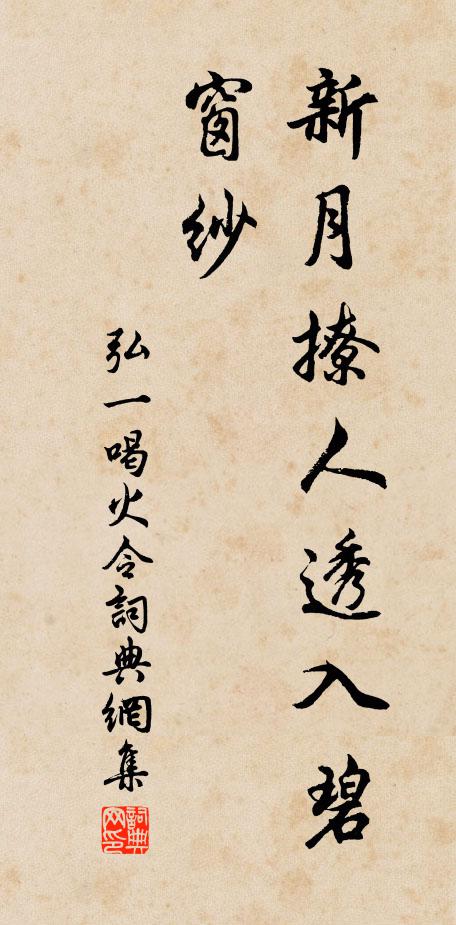 新月撩人透入碧
窗紗
弘一喝火令詞典網集
詞典网印